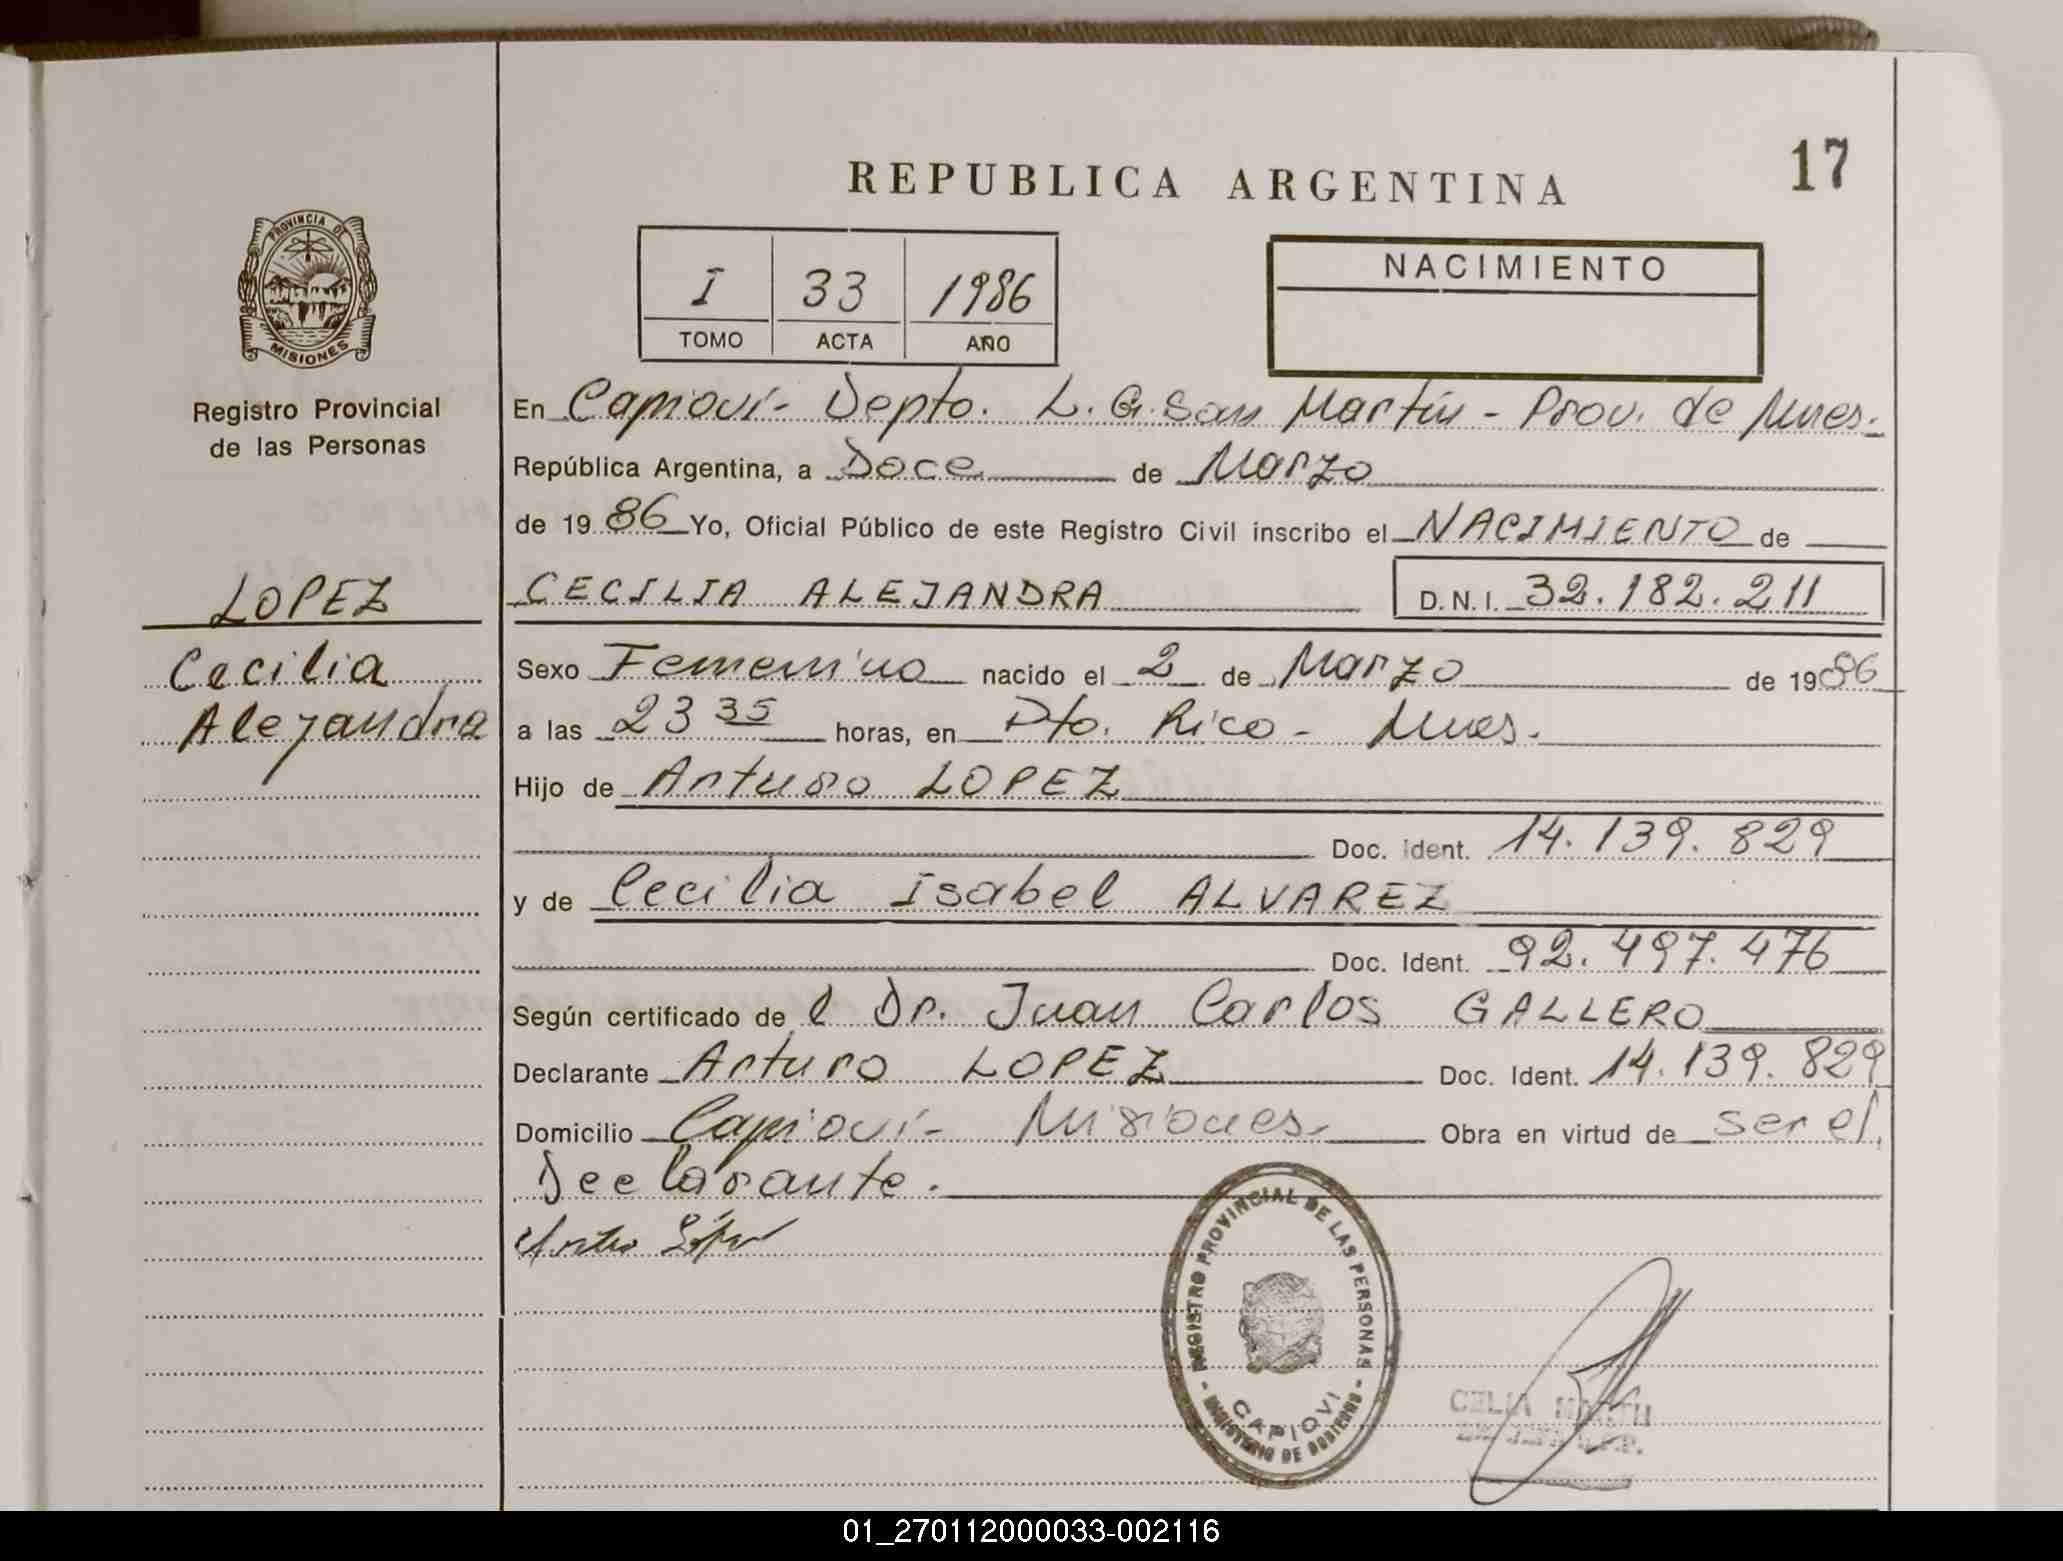 17
REPUBLICA ARGENTINA
PROVINCIA DE
MISIONES
Registro Provincial
de las Personas
I 33 1986
TOMO ACTA AÑO
NACIMIENTO
En Capioví- Depto. L. G. San Martín - Prov. de Mnes.
República Argentina, a Doce de Marzo
de 19 86 Yo, Oficial Público de este Registro Civil inscribo el NACIMIENTO de
LOPEZ
Cecilia
Alejandra
CECILIA ALEJANDRA D.N.I. 32.182.211
Sexo Femenino nacido el 2 de Marzo de 1986
a las 23 35 horas, en Pto. Rico - Mnes.
Hijo de Arturo LOPEZ
Doc. Ident. 14.139.829
y de Cecilia Isabel ALVAREZ
Doc. Ident. 92.497.476
Según certificado de l Dr. Juan Carlos GALLERO
Declarante Arturo LOPEZ Doc. Ident. 14.139.829
Domicilio Capioví- Misiones. Obra en virtud de ser el
Declarante.
Arturo López
REGISTRO PROVINCIAL DE LAS PERSONAS
CAPIOVI
- MINISTERIO DE GOBIERNO -
CELIA
01_270112000033-002116